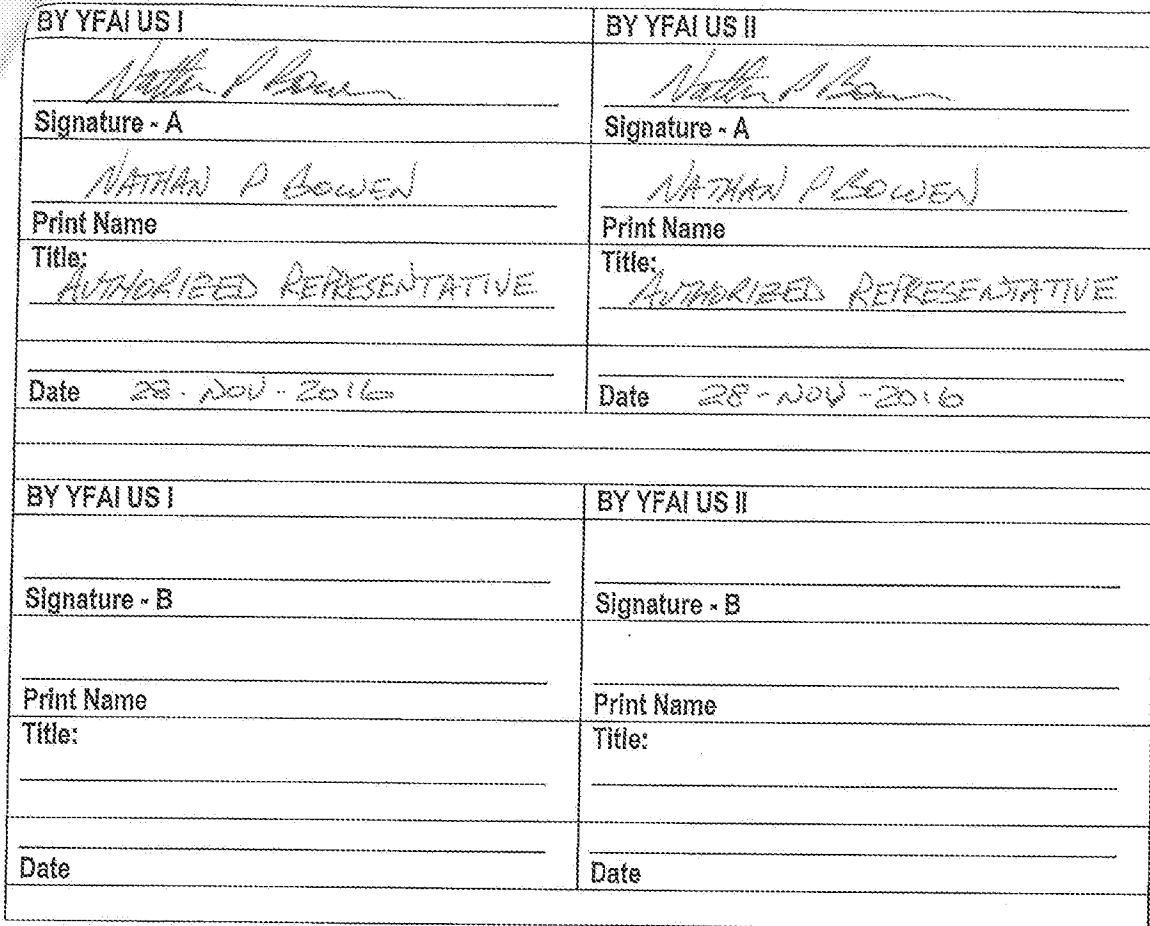 BY YFAI US I
BY YFAI US II
Nathan P Bowen
Nathan P Bowen
Signature - A
Signature - A
NATHAN P BOWEN
NATHAN P BOWEN
Print Name
Print Name
Title:
Title:
AUTHORIZED REPRESENTATIVE
AUTHORIZED REPRESENTATIVE
Date 28-NOV-2016
Date 28-NOV-2016
BY YFAI US I
BY YFAI US II
Signature - B
Signature - B
Print Name
Print Name
Title:
Title:
Date
Date